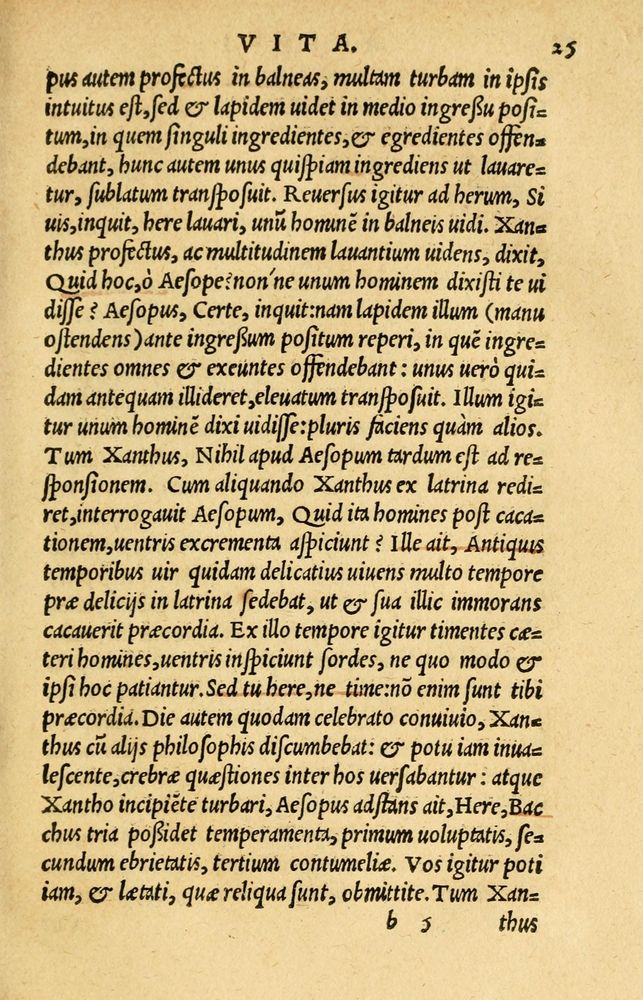 VITA. 25
pus autem profectus in balneas, multam turbam in ipſis
intuitus eſt, ſed & lapidem uidet in medio ingreßu poſi=
tum, in quem ſinguli ingredientes, & egredientes offen=
debant, hunc autem unus quiſpiam ingrediens ut lauare=
tur, ſublatum tranſpoſuit. Reuerſus igitur ad herum, Si
uis, inquit, here lauari, unū hominē in balneis uidi. Xan=
thus profectus, ac multitudinem lauantium uidens, dixit,
Quid hoc, ò Aeſope? non'ne unum hominem dixiſti te ui
diſſe? Aeſopus, Certe, inquit: nam lapidem illum (manu
oſtendens) ante ingreßum poſitum reperi, in quē ingre=
dientes omnes & exeuntes offendebant: unus uerò qui=
dam antequam illideret, eleuatum tranſpoſuit. Illum igi=
tur unum hominē dixi uidiſſe: pluris faciens quàm alios.
Tum Xanthus, Nihil apud Aeſopum tardum eſt ad re=
ſponſionem. Cum aliquando Xanthus ex latrina redi=
ret, interrogauit Aeſopum, Quid ita homines poſt caca=
tionem, uentris excrementa aſpiciunt? Ille ait, Antiquis
temporibus uir quidam delicatius uiuens multo tempore
præ delicijs in latrina ſedebat, ut & ſua illic immorans
cacauerit præcordia. Ex illo tempore igitur timentes cæ=
teri homines, uentris inſpiciunt ſordes, ne quo modo &
ipſi hoc patiantur. Sed tu here, ne time: nō enim ſunt tibi
præcordia. Die autem quodam celebrato conuiuio, Xan=
thus cū alijs philoſophis diſcumbebat: & potu iam inua=
leſcente, crebræ quæſtiones inter hos uerſabantur: atque
Xantho incipiēte turbari, Aeſopus adſtans ait, Here, Bac
chus tria poßidet temperamenta, primum uoluptatis, ſe=
cundum ebrietatis, tertium contumeliæ. Vos igitur poti
iam, & lætati, quæ reliqua ſunt, obmittite. Tum Xan=
b 5 thus